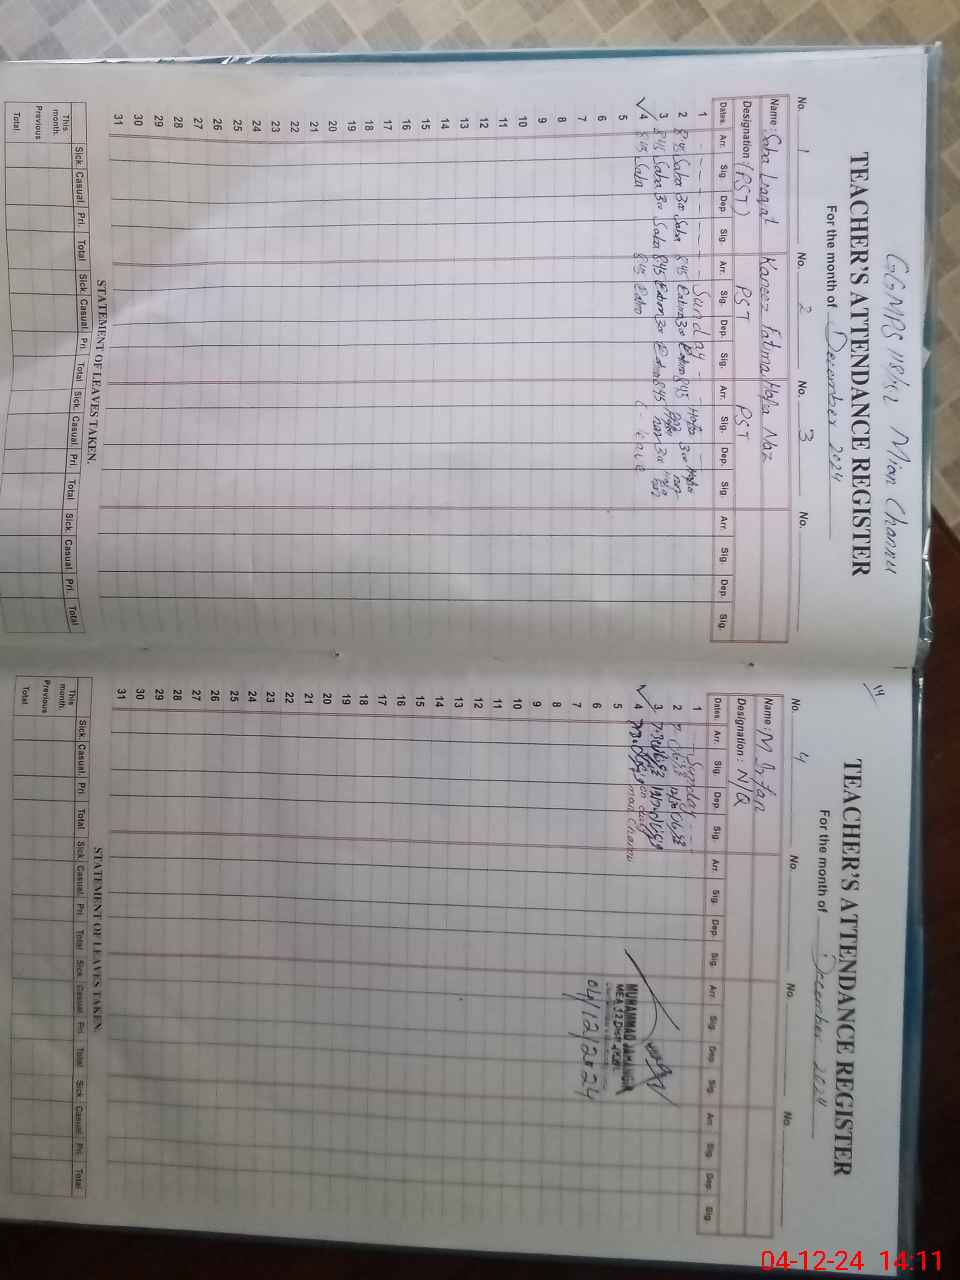 GGMPS 118/12 Mian Channu
TEACHER'S ATTENDANCE REGISTER
For the month of December 2024
No. 1 No. 2 No. 3 No.
Name: Saba Liaqat Kaneez Fatima Hafia Naz
Designation (PST) PST PST
Dates. Arr. Sig. Dep. Sig. Arr. Sig. Dep. Sig. Arr. Sig. Dep. Sig. Arr. Sig. Dep. Sig.
1 - - - - - - Sunday - -
2 8:45 Saba 3:00 Saba 8:45 3:00 8:45 3:00
3 8:45 Saba 3:00 Saba 8:45 3:00 8:45 3:00
4 8:45 Saba 8:45
5
6
7
8
9
10
11
12
13
14
15
16
17
18
19
20
21
22
23
24
25
26
27
28
29
30
31
STATEMENT OF LEAVES TAKEN.
Sick. Casual. Pri. Total Sick. Casual. Pri. Total Sick. Casual. Pri. Total Sick. Casual. Pri. Total
This month.
Previous
Total
14
TEACHER'S ATTENDANCE REGISTER
For the month of December 2024
No. 4 No. No. No.
Name: M Irfan
Designation: N/Q
Dates. Arr. Sig. Dep. Sig. Arr. Sig. Dep. Sig. Arr. Sig. Dep. Sig. Arr. Sig. Dep. Sig.
1 Sunday
2
3
4 on duty
Channu
5
6
7
8
9
10
11
12
13
14
15
16
17
18
19
20
21
22
23
24
25
26
27
28
29
30
31
MUHAMMAD JAHANGIR
MEA 32 Distt
04/12/2024
STATEMENT OF LEAVES TAKEN.
Sick. Casual. Pri. Total Sick. Casual. Pri. Total Sick. Casual. Pri. Total Sick. Casual. Pri. Total
This month.
Previous
Total
04-12-24 14:11